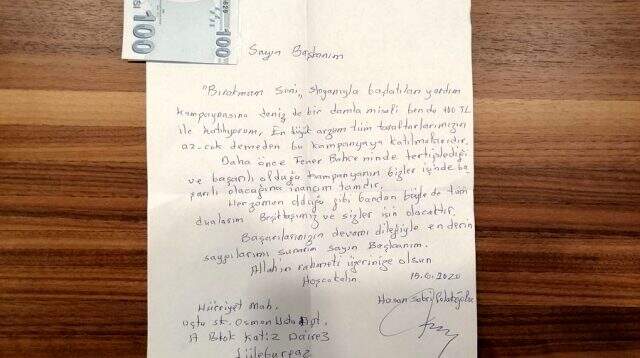 100
100
Sayın Başkanım
"Bırakmam Seni" sloganıyla başlatılan yardım
kampanyasına denizde bir damla misali bende 100 TL
ile katılıyorum. En büyük arzum tüm taraftarlarımızın
az-çok demeden bu kampanyaya katılmalarıdır.
Daha önce Fener Bahçeminde tertiplediği
ve başarılı olduğu kampanyanın bizler içinde ba
şarılı olacağına inancım tamdır.
Herzaman olduğu gibi bundan böyle de tüm
dualarım Beşiktaşımız ve sizler için olacaktır.
Başarılarınızın devamı dileğiyle en derin
saygılarımı sunarım sayın Başkanım.
Allah'ın rahmeti üzerinize olsun
Hoşcakalın 15.6.2020
Hürriyet Mah. Hasan Sabri
Usta sk. Osman
A Blok Kat:2 Daire:3
Lüleburgaz